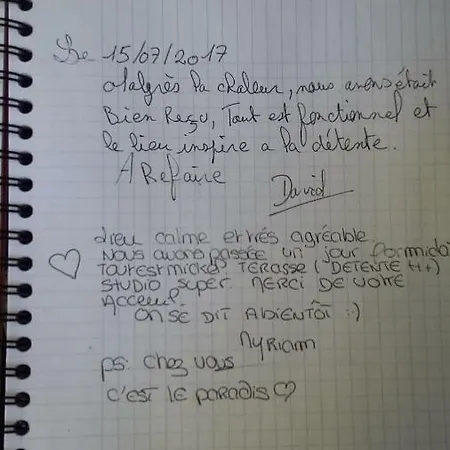 Le 15/07/2017
Malgrès la chaleur, nous avons était
Bien Reçu, Tout est fonctionnel et
le lieu inspire a la détente.
A Refaire
David
Lieu calme et très agréable.
Nous avons passée un jour formida
Tout est nickel TERASSE (DETENTE +++)
STUDIO super. MERCI DE VOTRE
Acceuil.
ON SE DIT A BIENTÔT :)
Myriam
ps: chez vous
c'est le paradis ♡